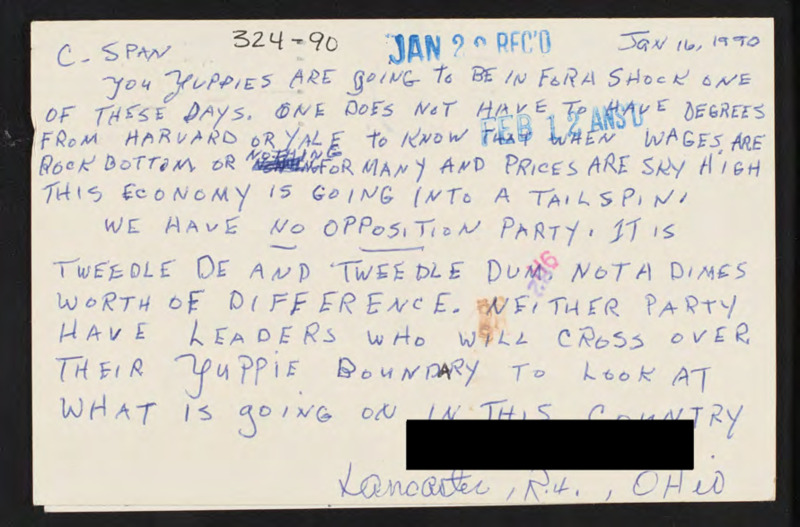 324-90
JAN 2 REC'D
Jan 16, 1990
C-SPAN
YOU YUPPIES ARE GOING TO BE IN FOR A SHOCK ONE
OF THESE DAYS. ONE DOES NOT HAVE TO HAVE DEGREES
FEB 12 ANS'D
FROM HARVARD OR YALE TO KNOW THAT WHEN WAGES ARE
ROCK BOTTOM OR NOTHING FOR MANY AND PRICES ARE SKY HIGH
THIS ECONOMY IS GOING INTO A TAILSPIN.
WE HAVE NO OPPOSITION PARTY. IT IS
TWEEDLE DE AND TWEEDLE DUM NOT A DIMES
WORTH OF DIFFERENCE. NEITHER PARTY
HAVE LEADERS WHO WILL CROSS OVER
THEIR YUPPIE BOUNDARY TO LOOK AT
WHAT IS GOING ON IN THIS COUNTRY
Lancaster, R.4., OHio